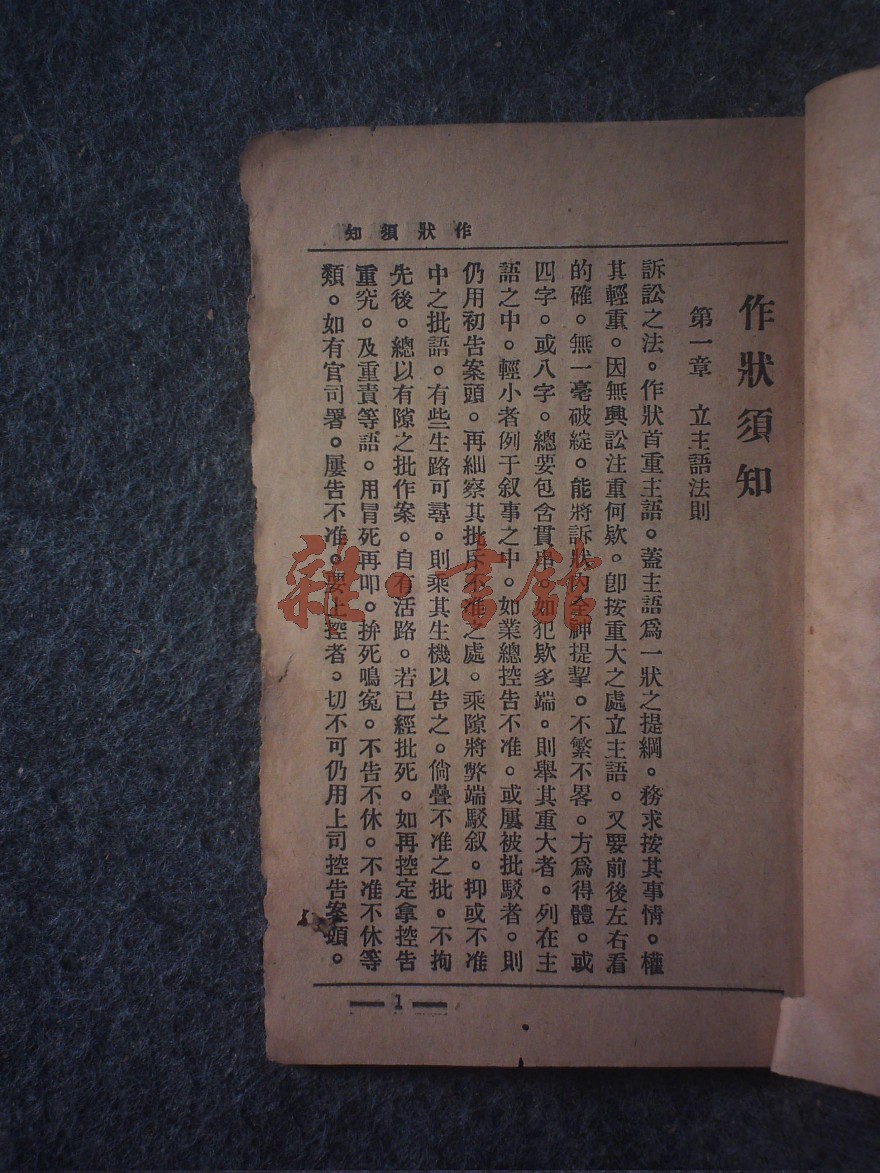 作狀須知
作狀須知
第一章　立主語法則
訴訟之法。作狀首重主語。蓋主語爲一狀之提綱。務求按其事情。權
其輕重。因無興訟注重何欵。卽按重大之處立主語。又要前後左右看
的確。無一毫破綻。能將訴狀內全神提挈。不繁不畧。方爲得體。或
四字。或八字。總要包含貫串。如犯欵多端。則舉其重大者。列在主
語之中。輕小者例于叙事之中。如業總控告不准。或屢被批駁者。則
仍用初告案頭。再細察其批斥不准之處。乘隙將弊端駁叙。抑或不准
中之批語。有些生路可尋。則乘其生機以告之。倘疊不准之批。不拘
先後。總以有隙之批作案。自有活路。若已經批死。如再控定拿控告
重究。及重責等語。用冒死再叩。拚死鳴冤。不告不休。不准不休等
類。如有官司署。屢告不准。要上控者。切不可仍用上司控告案頭。
1
雜·書館